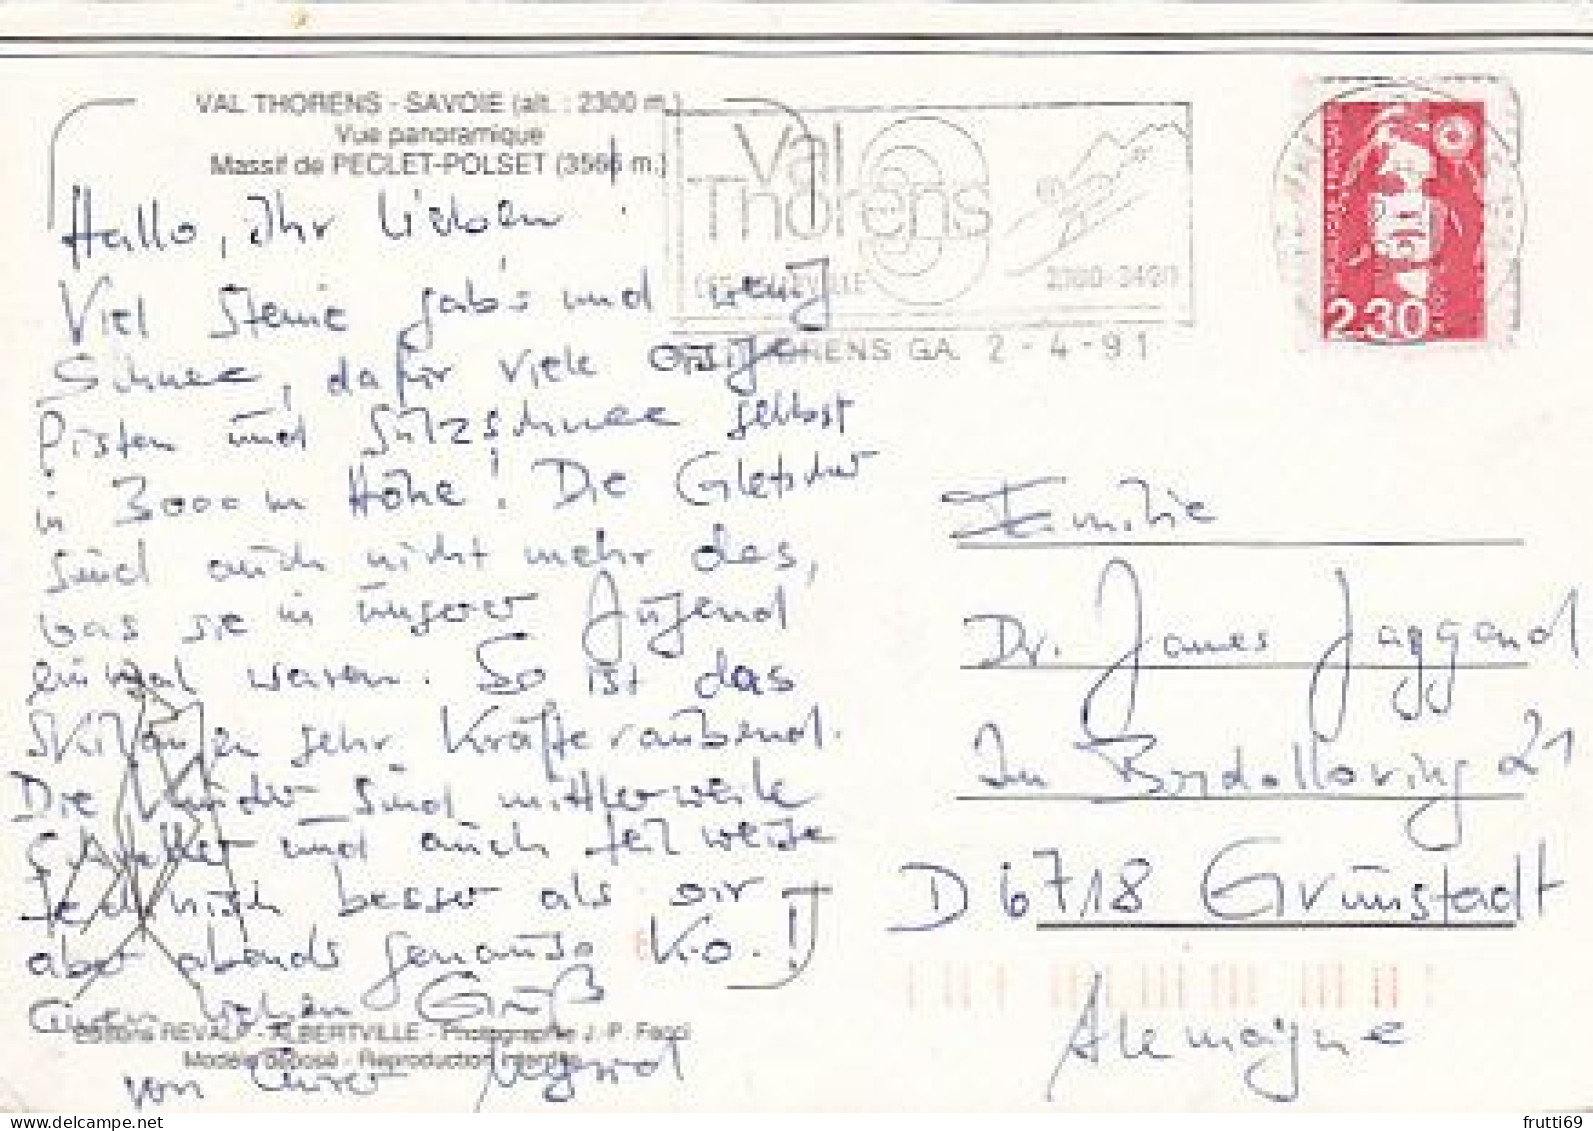 VAL THORENS - SAVOIE (alt. : 2300 m.)
Vue panoramique
Massif de PECLET-POLSET (3566 m.)
Hallo, Ihr Lieben!
Viel Steine gab's und wenig
Schnee, dafür viele eisige
Pisten und Sülzschnee selbst
in 3000m Höhe! Die Gletscher
sind auch nicht mehr das,
was sie in unserer Jugend
einmal waren. So ist das
Skilaufen sehr Kräfteraubend.
Die Kinder sind mittlerweile
schneller und auch teilweise
technisch besser als wir
aber abends genauso K.o.!
Einen lieben Gruß
von Eurer
Editions REVALP - ALBERTVILLE - Photographie J.-P. Facci
Modèle déposé - Reproduction interdite
Val
Thorens
LES BELLEVILLE
2300-3400
VAL THORENS GA 2-4-91
REPUBLIQUE FRANÇAISE
2,30
Familie
Dr. James Jaggand
Im Bordolloring 21
D 6718 Grünstadt
Alemagne
frutti69